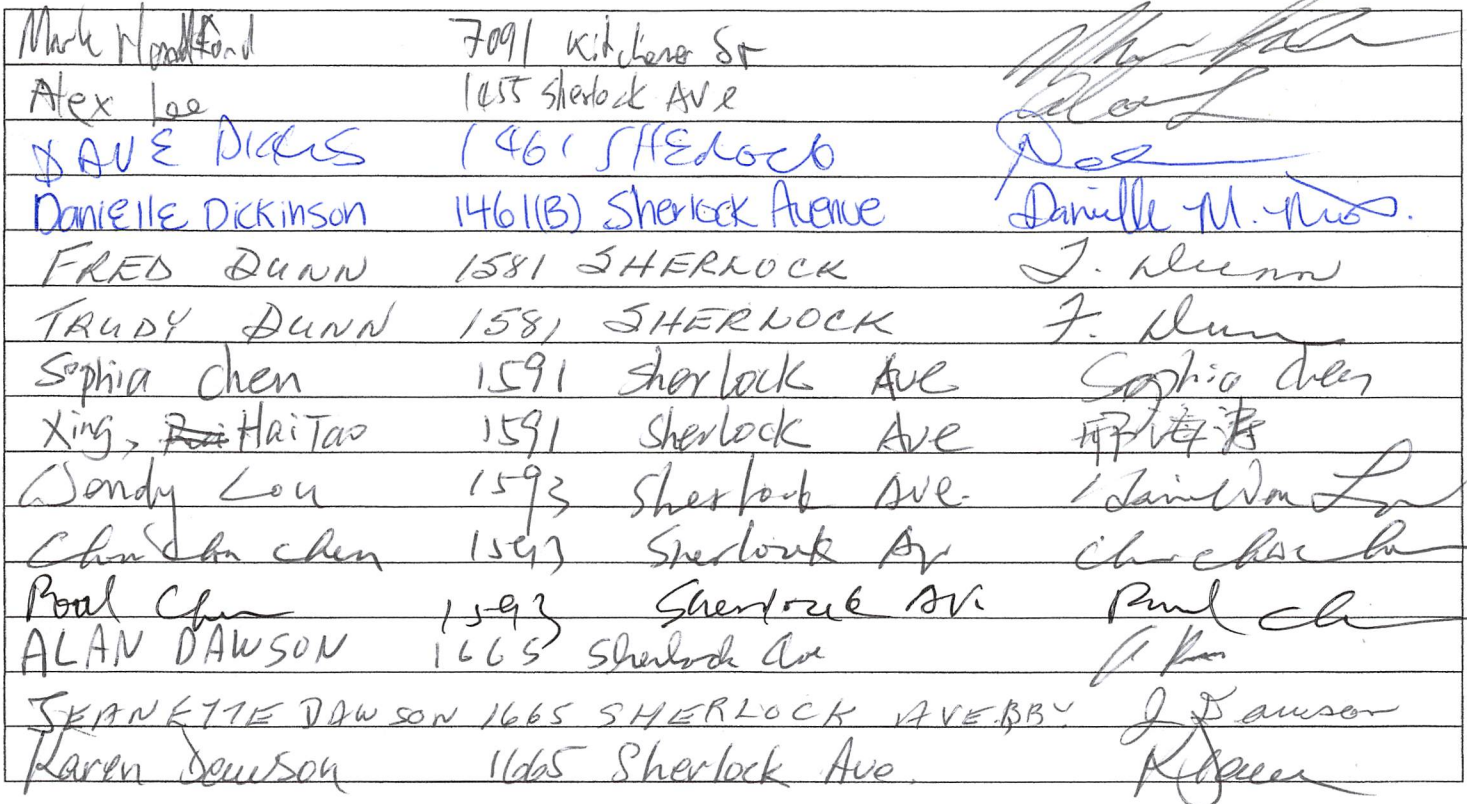 Mark 7091 Kitchener St
Alex Lee 1455 Sherlock AVe Alex L
DAVE DICKS 1461 SHERLOCK
DaniEllE Dickinson 1461(B) Sherlock Avenue Danielle M.
FRED DUNN 1581 SHERLOCK F. Dunn
TRUDY DUNN 1581 SHERLOCK T. Dunn
Sophia Chen 1591 Sherlock Ave Sophia Chen
Xing, HaiTao 1591 Sherlock Ave 邢海涛
Wendy Lou 1593 Sherlock Ave.
Chen 1593 Sherlock Av
Paul Chen 1593 Sherlock Av. Paul
ALAN DAWSON 1665 Sherlock Ave
JEANETTE DAWSON 1665 SHERLOCK AVE.BBY J Dawson
Karen Dawson 1665 Sherlock Ave.